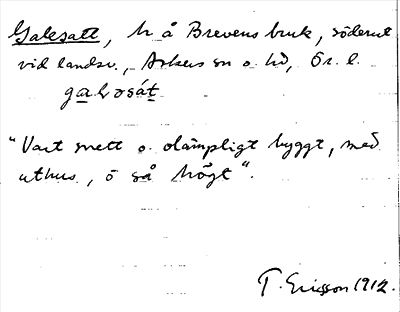 Galesätt, h å Brevens bruk, söderut
vid landsv., Askers sn o. hd, Ör. l.
galosät
"Vart snett o. olämpligt byggt, med
uthus, o så högt".
T. Ericsson 1912.